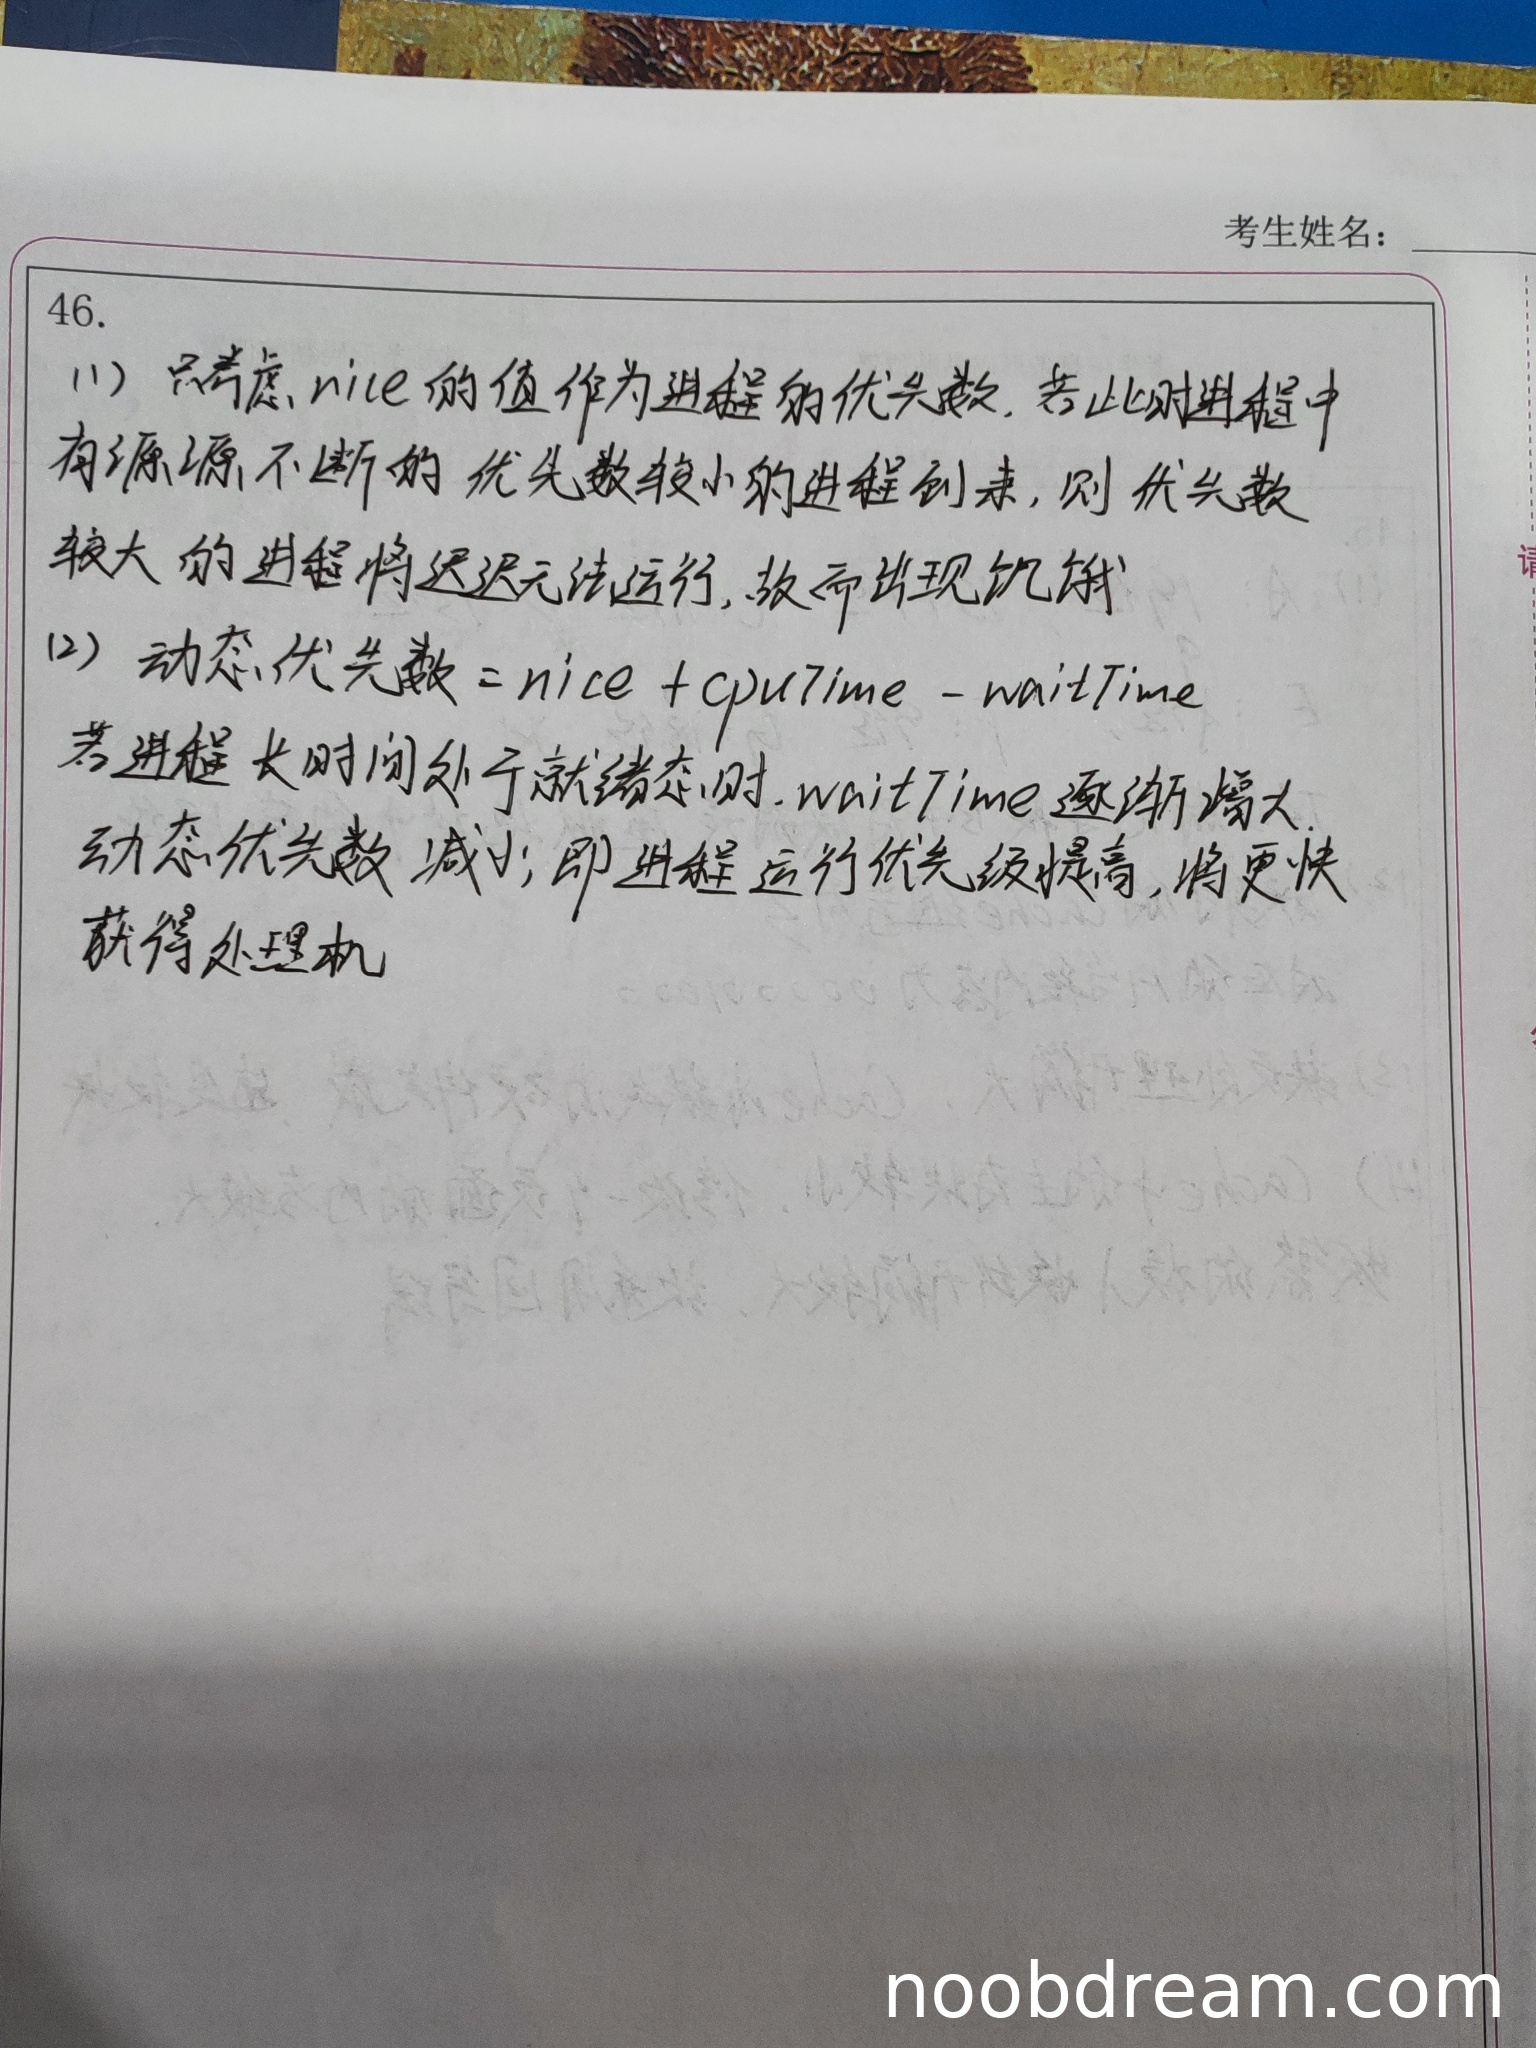 考生姓名：
46.
(1) 只考虑nice的值作为进程的优先数. 若此时进程中
有源源不断的优先数较小的进程到来, 则优先数
较大的进程将迟迟无法运行, 故而出现饥饿
(2) 动态优先数 = nice + cpuTime - waitTime
若进程长时间处于就绪态时. waitTime逐渐增大.
动态优先数减小; 即进程运行优先级提高, 将更快
获得处理机
请
noobdream.com